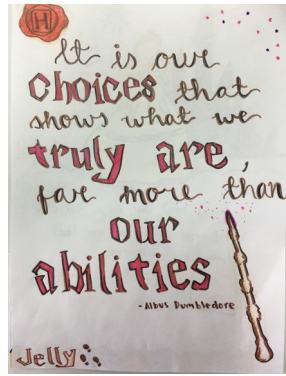 H
It is our
choices that
shows what we
truly are,
far more than
our
abilities
- Albus Dumbledore
Jelly